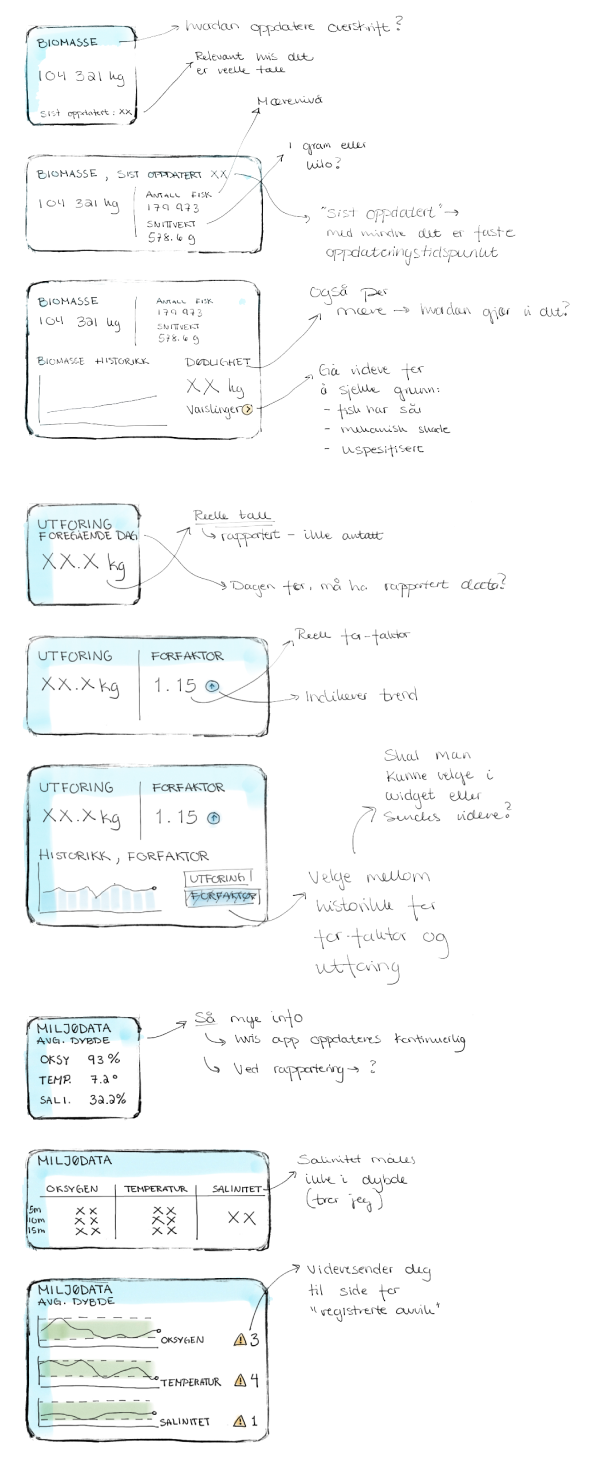 BIOMASSE
104 321 kg
Sist oppdatert: XX
hvordan oppdatere overskrift?
Relevant hvis det
er reelle tall
BIOMASSE, SIST OPPDATERT XX
104 321 kg
ANTALL FISK
179 973
SNITTVEKT
578.6 g
Merenivå
i gram eller
kilo?
"Sist oppdatert" →
med mindre det er faste
oppdateringstidspunkt
BIOMASSE
104 321 kg
ANTALL FISK
179 973
SNITTVEKT
578.6 g
BIOMASSE HISTORIKK
DØDLIGHET
XX kg
Varslinger
Også per
mære → hvordan gjør vi det?
Gå videre for
å sjekke grunn:
- fisk har sår
- mekanisk skade
- uspesifisert
UTFORING
FOREGÅENDE DAG
XX.X kg
Reelle tall
↳ rapportert - ikke antatt
Dagen før, må ha rapportert data?
UTFORING
XX.X kg
FORFAKTOR
1.15
Reell fôr-faktor
Indikerer trend
UTFORING
XX.X kg
FORFAKTOR
1.15
HISTORIKK, FORFAKTOR
UTFORING
FORFAKTOR
Skal man
kunne velge i
widget eller
sendes videre?
Velge mellom
historikk for
for-faktor og
utforing
MILJØDATA
AVG. DYBDE
OKSY 93%
TEMP. 7.2°
SALI. 32.2%
Så mye info
↳ hvis app oppdateres kontinuerlig
↳ Ved rapportering → ?
MILJØDATA
OKSYGEN TEMPERATUR SALINITET
5m XX XX
10m XX XX XX
15m XX XX
Salinitet måles
ikke i dybde
(tror jeg)
MILJØDATA
AVG. DYBDE
OKSYGEN 3
TEMPERATUR 4
SALINITET 1
Videresender deg
til side for
"registrerte avvik"